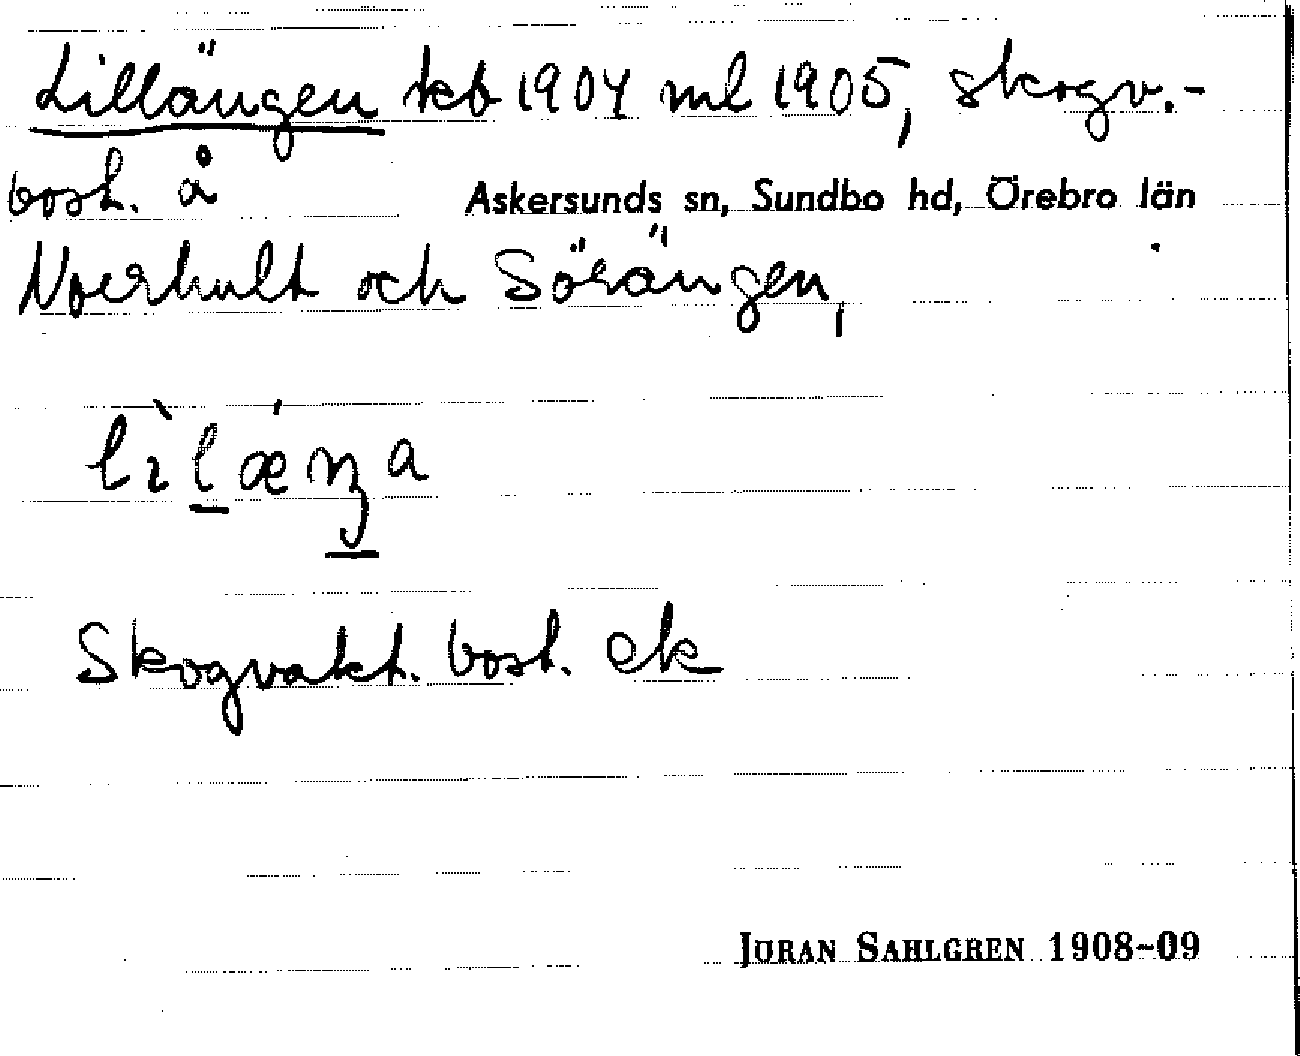 Lillängen kb 1904 ml 1905, skogv.-
bost. å
Askersunds sn, Sundbo hd, Örebro län
Noerhult och Söräng​en,
lìlæ´ŋa
Skogvakt. bost. ek
JÖRAN SAHLGREN 1908-09